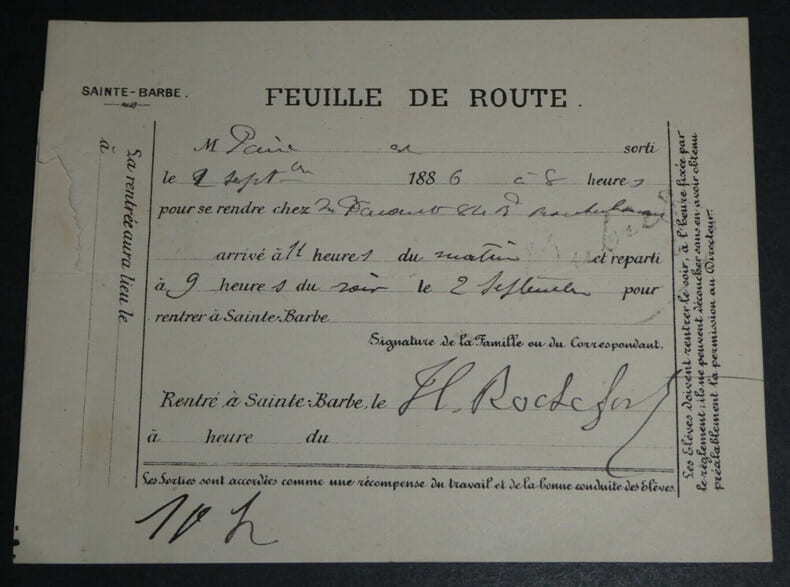 SAINTE-BARBE.
FEUILLE DE ROUTE.
M sorti
le 2 sept 1886 à 8 heures
pour se rendre chez
arrivé à 11 heures du matin et reparti
à 9 heures du soir le 2 Septembre pour
rentrer à Sainte-Barbe
Signature de la Famille ou du Correspondant.
Rentré à Sainte-Barbe, le H. Rochefort
à heure du
Les Sorties sont accordées comme une récompense du travail et de la bonne conduite des Elèves.
10 h
La rentrée aura lieu le
à
Les Elèves doivent rentrer le soir, à l'heure fixée par
le règlement; ils ne peuvent découcher sans en avoir obtenu
préalablement la permission au Directeur.